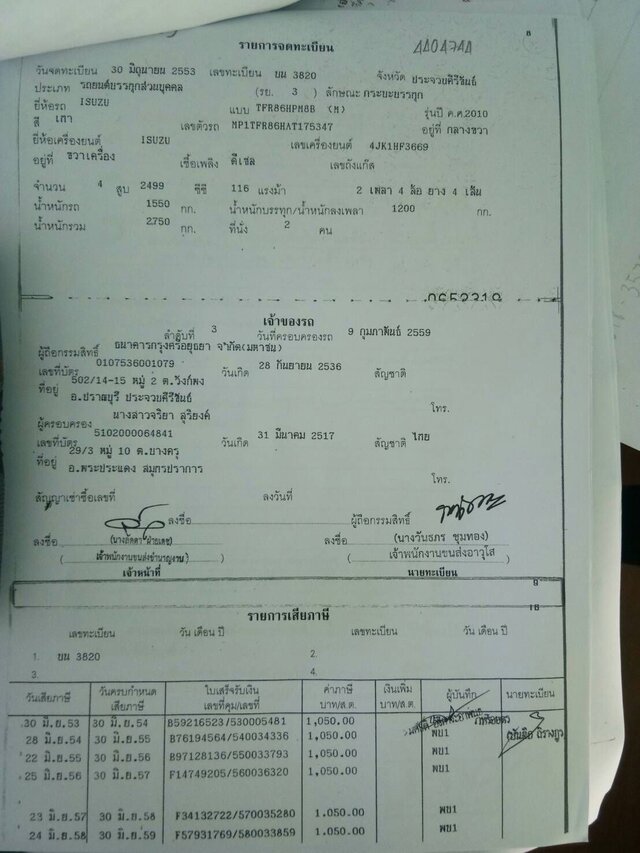 8
รายการจดทะเบียน
4404744
วันจดทะเบียน 30 มิถุนายน 2553 เลขทะเบียน ขน 3820 จังหวัด ประจวบคีรีขันธ์
ประเภท รถยนต์บรรทุกส่วนบุคคล (รย. 3 ) ลักษณะ กระบะบรรทุก
ยี่ห้อรถ ISUZU แบบ TFR86HPM8B (M) รุ่นปี ค.ศ.2010
สี เทา เลขตัวรถ MP1TFR86HAT175347 อยู่ที่ กลางขวา
ยี่ห้อเครื่องยนต์ ISUZU เลขเครื่องยนต์ 4JK1HF3669
อยู่ที่ ขวาเครื่อง เชื้อเพลิง ดีเซล เลขถังแก๊ส
จำนวน 4 สูบ 2499 ซีซี 116 แรงม้า 2 เพลา 4 ล้อ ยาง 4 เส้น
น้ำหนักรถ 1550 กก. น้ำหนักบรรทุก/น้ำหนักลงเพลา 1200 กก.
น้ำหนักรวม 2750 กก. ที่นั่ง 2 คน
เจ้าของรถ
ลำดับที่ 3 วันที่ครอบครองรถ 9 กุมภาพันธ์ 2559
ผู้ถือกรรมสิทธิ์ ธนาคารกรุงศรีอยุธยา จำกัด(มหาชน)
เลขที่บัตร 0107536001079 วันเกิด 28 กันยายน 2536 สัญชาติ
ที่อยู่ 502/14-15 หมู่ 2 ต.วังก์พง
อ.ปราณบุรี ประจวบคีรีขันธ์ โทร.
ผู้ครอบครอง นางสาวจริยา สุริยงค์
เลขที่บัตร 5102000064841 วันเกิด 31 มีนาคม 2517 สัญชาติ ไทย
ที่อยู่ 29/3 หมู่ 10 ต.บางครุ
อ.พระประแดง สมุทรปราการ โทร.
สัญญาเช่าซื้อเลขที่ ลงวันที่
ลงชื่อ ผู้ถือกรรมสิทธิ์
ลงชื่อ ลงชื่อ (นางวันธภร ชุมทอง)
(เจ้าพนักงานขนส่งชำนาญงาน) (เจ้าพนักงานขนส่งอาวุโส)
เจ้าหน้าที่ นายทะเบียน
9
18
รายการเสียภาษี
เลขทะเบียน วัน เดือน ปี เลขทะเบียน วัน เดือน ปี
1. ขน 3820 2.
3. 4.
วันเสียภาษี วันครบกำหนดเสียภาษี ใบเสร็จรับเงิน เลขที่คุม/เลขที่ ค่าภาษี บาท/ส.ต. เงินเพิ่ม บาท/ส.ต. ผู้บันทึก นายทะเบียน
30 มิ.ย.53 30 มิ.ย.54 B59216523/530005481 1,050.00
28 มิ.ย.54 30 มิ.ย.55 B76194564/540034336 1,050.00 พข1
22 มิ.ย.55 30 มิ.ย.56 B97128136/550033793 1,050.00 พข1
25 มิ.ย.56 30 มิ.ย.57 F14749205/560036320 1,050.00 พข1
23 มิ.ย.57 30 มิ.ย.58 F34132722/570035280 1,050.00 พข1
24 มิ.ย.58 30 มิ.ย.59 F57931769/580033859 1,050.00 พข1